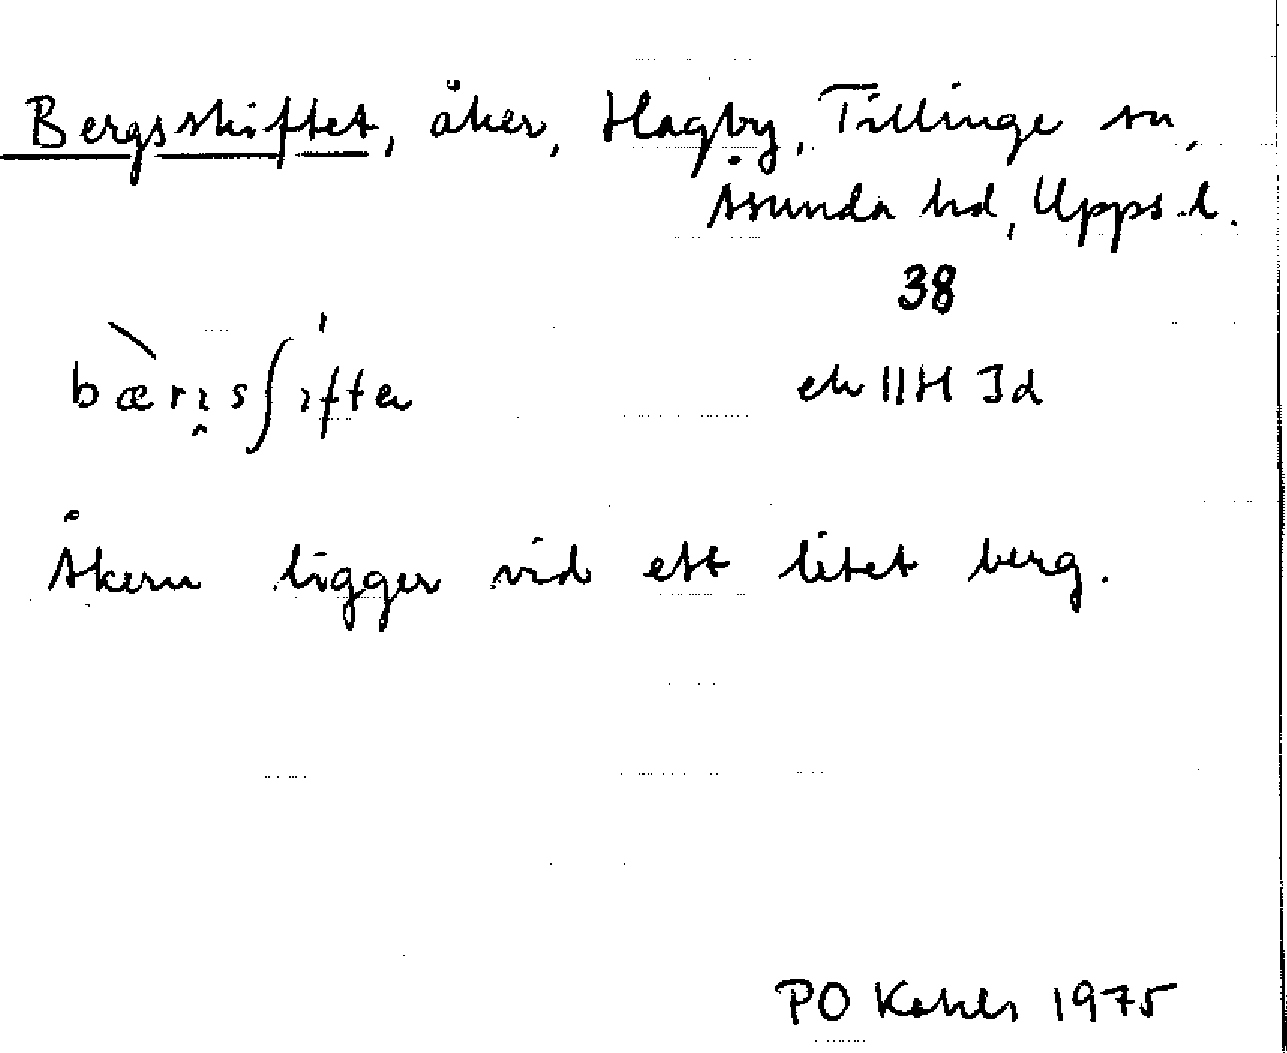 Bergsskiftet, åker, Hagby, Tillinge sn,
Åsunda hd, Upps. l.
38
bærɪ̯sʃɪftɐ ek 11H 3d
Åkern ligger vid ett litet berg.
PO 1975